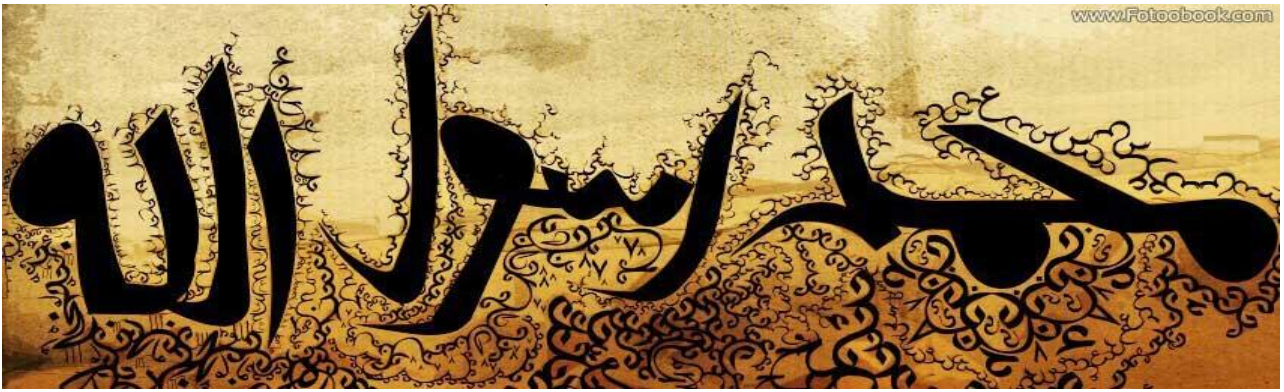 www.Fotoobook.com
محمد رسول الله